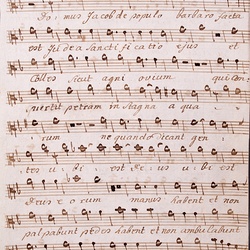 Domus Jacob de populo barbaro facta
est Judea Sanctificatio ejus et
Colles sicut agni ovium qui Con
vertit petram in Stagna aqua
rum ne quando dicant gen
tes ubi est Deus ubi est
Deus eorum manus habent et non
palpabunt pedes habent et non ambulabunt